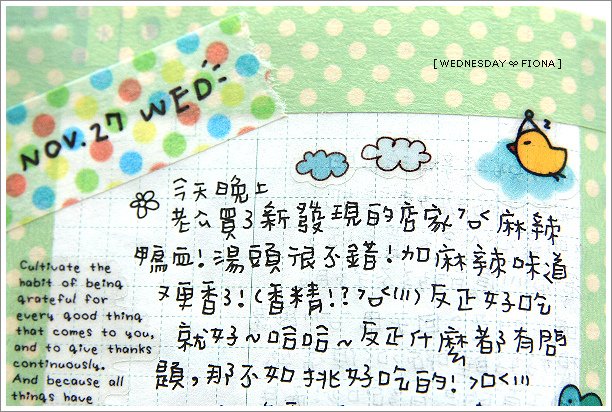 [ WEDNESDAY ∞ FIONA ]
NOV.27 WED
z
今天晚上
老公買了新發現的店家ㄉ麻辣
鴨血!湯頭很不錯!加麻辣味道
更香了!(香精!?
反正好吃
就好~哈哈~反正什麼都有問
題,那不如挑好吃的!
Cultivate the
habit of being
grateful for
every good thing
that comes to you,
and to give thanks
continuously.
And because all
things have